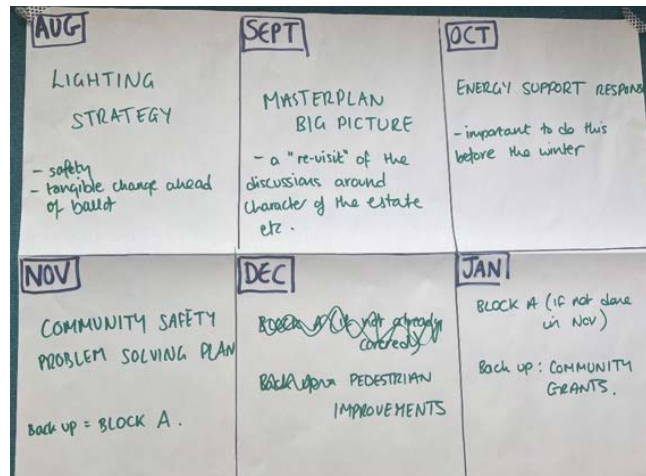 AUG
LIGHTING
STRATEGY
- safety
- tangible change ahead
of ballot
SEPT
MASTERPLAN
BIG PICTURE
- a "re-visit" of the
discussions around
character of the estate
etc.
OCT
ENERGY SUPPORT RESPONS
- important to do this
before the winter
NOV
COMMUNITY SAFETY
PROBLEM SOLVING PLAN
Back up = BLOCK A.
DEC
BLOCK A (if not already
covered)
Back up = PEDESTRIAN
IMPROVEMENTS
JAN
BLOCK A (if not done
in NOV)
Back up: COMMUNITY
GRANTS.